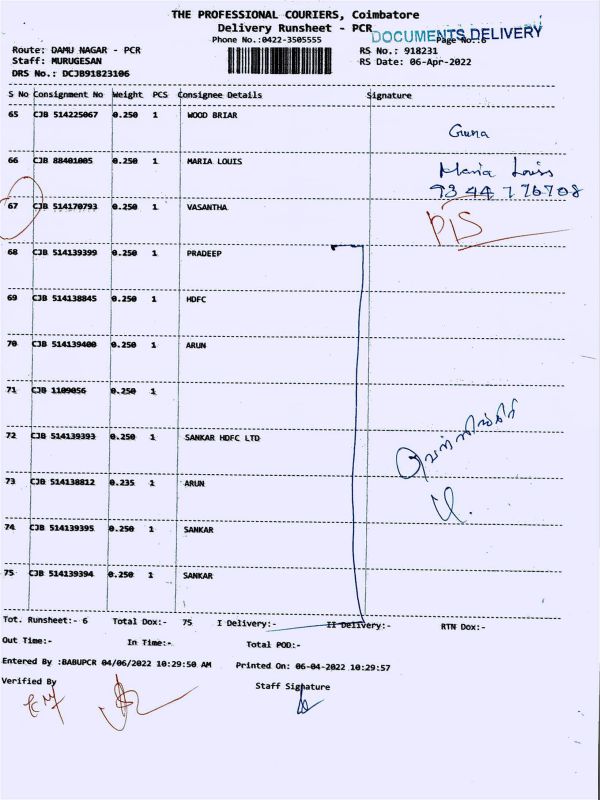 THE PROFESSIONAL COURIERS, Coimbatore
Delivery Runsheet - PCR
DOCUMENTS DELIVERY
Phone No.:0422-3505555
Page No.:6
Route: DAMU NAGAR - PCR
RS No.: 918231
Staff: MURUGESAN
RS Date: 06-Apr-2022
DRS No.: DCJB91823106
S No Consignment No Weight PCS Consignee Details Signature
65 CJB 514225067 0.250 1 WOOD BRIAR
Guna
66 CJB 88401005 0.250 1 MARIA LOUIS Maria Louis
93 44 7 76708
67 CJB 514170793 0.250 1 VASANTHA
68 CJB 514139399 0.250 1 PRADEEP
69 CJB 514138845 0.250 1 HDFC
70 CJB 514139400 0.250 1 ARUN
71 CJB 1109056 0.250 1
72 CJB 514139393 0.250 1 SANKAR HDFC LTD
73 CJB 514138812 0.235 1 ARUN
74 CJB 514139395 0.250 1 SANKAR
75 CJB 514139394 0.250 1 SANKAR
Tot. Runsheet:- 6 Total Dox:- 75 I Delivery:- II Delivery:- RTN Dox:-
Out Time:- In Time:- Total POD:-
Entered By :BABUPCR 04/06/2022 10:29:50 AM Printed On: 06-04-2022 10:29:57
Verified By Staff Signature